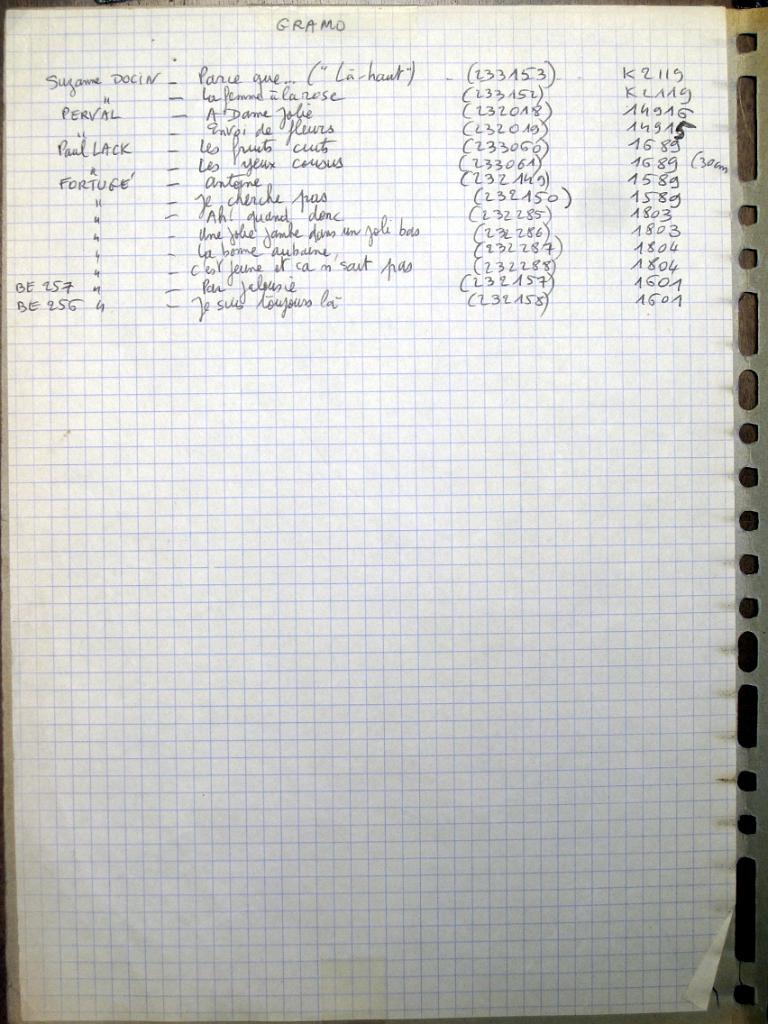 GRAMO
Suzanne DOCIN - Parce que... ("Là-haut") - (233153) K2119
" - La femme à la rose (233152) K2119
PERVAL - A Dame jolie (232018) 14916
" - Envoi de fleurs (232019) 14915
Paul LACK - Les fruits cuits (233060) 1689
" - Les yeux cousus (233061) 1689 (30cm
FORTUGÉ - Antoine (232149) 1589
" - Je cherche pas (232150) 1589
" - Ah! quand donc (232285) 1803
" - Une jolie jambe dans un joli bas (232286) 1803
" - La bonne aubaine, (232287) 1804
" - c'est jeune et ça n'sait pas (232288) 1804
BE 257 " - Par jalousie (232157) 1601
BE 256 " - Je suis toujours là (232158) 1601